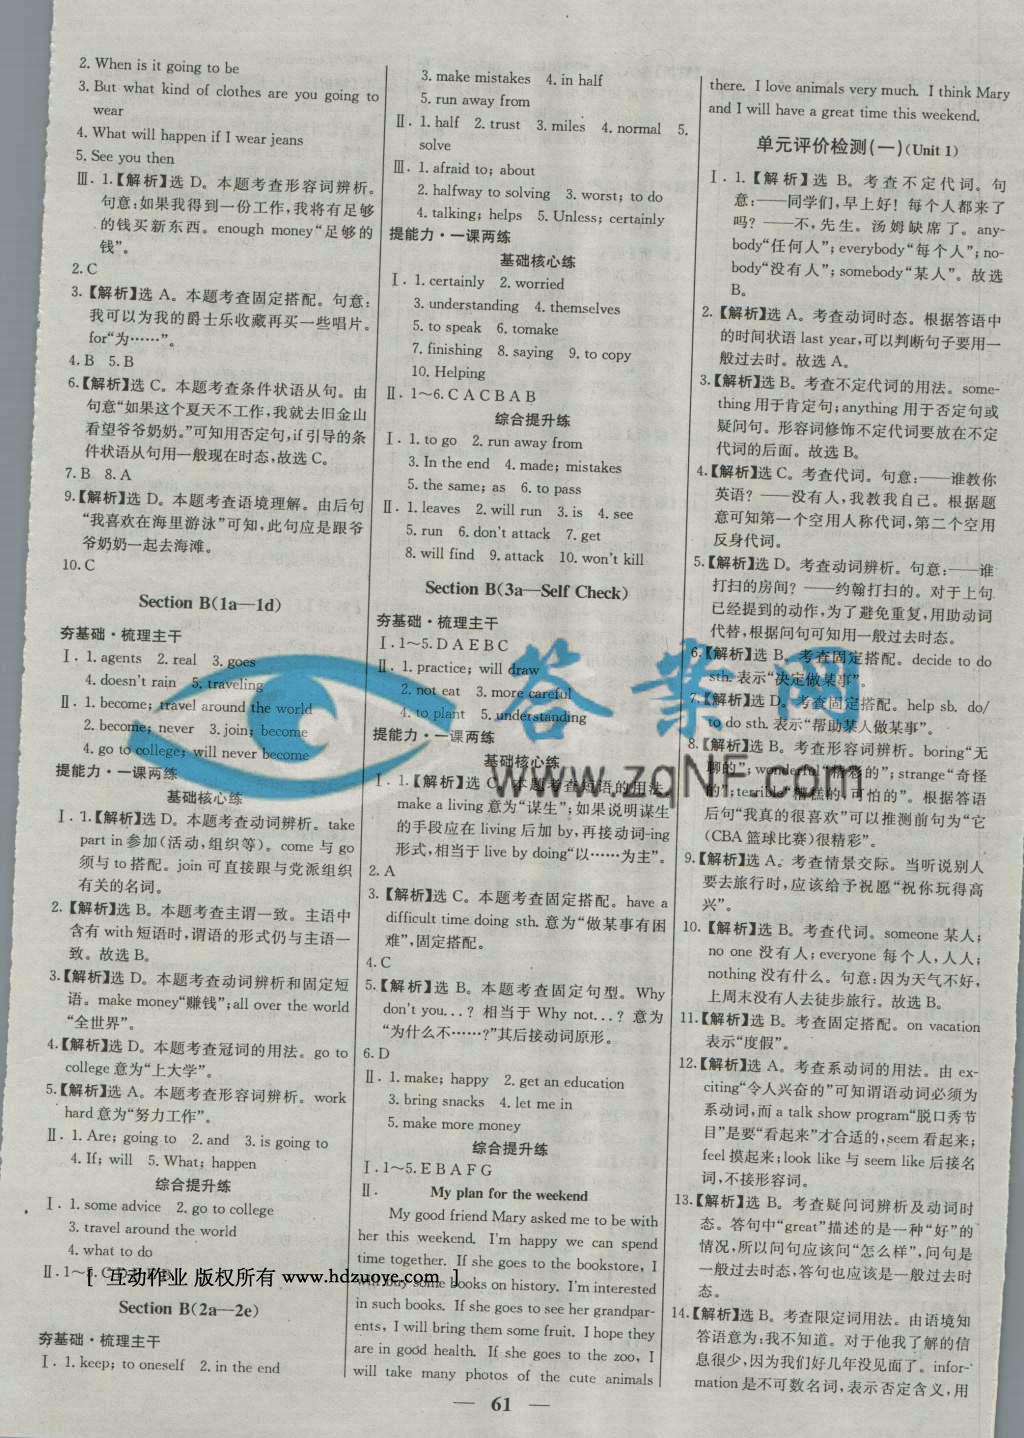 2. When is it going to be
3. But what kind of clothes are you going to
wear
4. What will happen if I wear jeans
5. See you then
Ⅲ. 1.【解析】选 D。本题考查形容词辨析。
句意:如果我得到一份工作,我将有足够
的钱买新东西。enough money“足够的
钱”。
2. C
3.【解析】选 A。本题考查固定搭配。句意:
我可以为我的爵士乐收藏再买一些唱片。
for“为……”。
4. B 5. B
6.【解析】选 C。本题考查条件状语从句。由
句意“如果这个夏天不工作,我就去旧金山
看望爷爷奶奶。”可知用否定句,if 引导的条
件状语从句用一般现在时态,故选 C。
7. B 8. A
9.【解析】选 D。本题考查语境理解。由后句
“我喜欢在海里游泳”可知,此句应是跟爷
爷奶奶一起去海滩。
10. C
Section B(1a—1d)
夯基础·梳理主干
Ⅰ. 1. agents 2. real 3. goes
4. doesn't rain 5. traveling
Ⅱ. 1. become; travel around the world
2. become; never 3. join; become
4. go to college; will never become
提能力·一课两练
基础核心练
Ⅰ. 1.【解析】选 D。本题考查动词辨析。take
part in 参加(活动,组织等)。come 与 go
须与 to 搭配。join 可直接跟与党派组织
有关的名词。
2.【解析】选 B。本题考查主谓一致。主语中
含有 with 短语时,谓语的形式仍与主语一
致。故选 B。
3.【解析】选 D。本题考查动词辨析和固定短
语。make money“赚钱”;all over the world
“全世界”。
4.【解析】选 D。本题考查冠词的用法。go to
college 意为“上大学”。
5.【解析】选 A。本题考查形容词辨析。work
hard 意为“努力工作”。
Ⅱ. 1. Are; going to 2. and 3. is going to
4. If; will 5. What; happen
综合提升练
Ⅰ. 1. some advice 2. go to college
3. travel around the world
4. what to do
Ⅱ. 1～5. C
[ 互动作业 版权所有 www.hdzuoye.com ]
Section B(2a—2e)
夯基础·梳理主干
Ⅰ. 1. keep; to oneself 2. in the end
3. make mistakes 4. in half
5. run away from
Ⅱ. 1. half 2. trust 3. miles 4. normal 5.
solve
Ⅲ. 1. afraid to; about
2. halfway to solving 3. worst; to do
4. talking; helps 5. Unless; certainly
提能力·一课两练
基础核心练
Ⅰ. 1. certainly 2. worried
3. understanding 4. themselves
5. to speak 6. tomake
7. finishing 8. saying 9. to copy
10. Helping
Ⅱ. 1～6. C A C B A B
综合提升练
Ⅰ. 1. to go 2. run away from
3. In the end 4. made; mistakes
5. the same; as 6. to pass
Ⅱ. 1. leaves 2. will run 3. is 4. see
5. run 6. don't attack 7. get
8. will find 9. attack 10. won't kill
Section B(3a—Self Check)
夯基础·梳理主干
Ⅰ. 1～5. D A E B C
Ⅱ. 1. practice; will draw
2. not eat 3. more careful
4. to plant 5. understanding
提能力·一课两练
基础核心练
Ⅰ. 1.【解析】选 C。本题考查短语的用法。
make a living 意为“谋生”;如果说明谋生
的手段应在 living 后加 by,再接动词-ing
形式,相当于 live by doing“以……为主”。
2. A
3.【解析】选 C。本题考查固定搭配。have a
difficult time doing sth. 意为“做某事有困
难”,固定搭配。
4. C
5.【解析】选 B。本题考查固定句型。Why
don't you...? 相当于 Why not...? 意为
“为什么不……?”其后接动词原形。
6. D
Ⅱ. 1. make; happy 2. get an education
3. bring snacks 4. let me in
5. make more money
综合提升练
Ⅰ. 1～5. E B A F G
Ⅱ. My plan for the weekend
My good friend Mary asked me to be with
her this weekend. I'm happy we can spend
time together. If she goes to the bookstore, I
will buy some books on history. I'm interested
in such books. If she goes to see her grandpar-
ents, I will bring them some fruit. I hope they
are in good health. If she goes to the zoo, I
will take many photos of the cute animals
there. I love animals very much. I think Mary
and I will have a great time this weekend.
单元评价检测(一)(Unit 1)
Ⅰ. 1.【解析】选 B。考查不定代词。句
意:——同学们,早上好! 每个人都来了
吗? ——不,先生。汤姆缺席了。any-
body“任何人”;everybody“每个人”;no-
body“没有人”;somebody“某人”。故选
B。
2.【解析】选 A。考查动词时态。根据答语中
的时间状语 last year,可以判断句子要用一
般过去时。故选 A。
3.【解析】选 B。考查不定代词的用法。some-
thing 用于肯定句;anything 用于否定句或
疑问句。形容词修饰不定代词要放在不定
代词的后面。故选 B。
4.【解析】选 C。考查代词。句意:——谁教你
英语? ——没有人,我教我自己。根据题
意可知第一个空用人称代词,第二个空用
反身代词。
5.【解析】选 D。考查动词辨析。句意:——谁
打扫的房间? ——约翰打扫的。对于上句
已经提到的动作,为了避免重复,用助动词
代替,根据问句可知用一般过去时态。
6.【解析】选 B。考查固定搭配。decide to do
sth. 表示“决定做某事”。
7.【解析】选 D。考查固定搭配。help sb. do/
to do sth. 表示“帮助某人做某事”。
8.【解析】选 B。考查形容词辨析。boring“无
聊的”;wonderful“精彩的”;strange“奇怪
的”;terrible“糟糕的,可怕的”。根据答语
后句“我真的很喜欢”可以推测前句为“它
(CBA 篮球比赛)很精彩”。
9.【解析】选 A。考查情景交际。当听说别人
要去旅行时,应该给予祝愿“祝你玩得高
兴”。
10.【解析】选 B。考查代词。someone 某人;
no one 没有人;everyone 每个人,人人;
nothing 没有什么。句意:因为天气不好,
上周末没有人去徒步旅行。故选 B。
11.【解析】选 C。考查固定搭配。on vacation
表示“度假”。
12.【解析】选 A。考查系动词的用法。由 ex-
citing“令人兴奋的”可知谓语动词必须为
系动词,而 a talk show program“脱口秀节
目”是要“看起来”才合适的,seem 看起来;
feel 摸起来;look like 与 seem like 后接名
词,不接形容词。
13.【解析】选 B。考查疑问词辨析及动词时
态。答句中“great”描述的是一种“好”的
情况,所以问句应该问“怎么样”,问句是
一般过去时态,答句也应该是一般过去时
态。
14.【解析】选 B。考查限定词用法。由语境知
答语意为:我不知道。对于他我了解的信
息很少,因为我们好几年没见面了。infor-
mation 是不可数名词,表示否定含义,用
— 61 —
答案网
www.zqnf.com